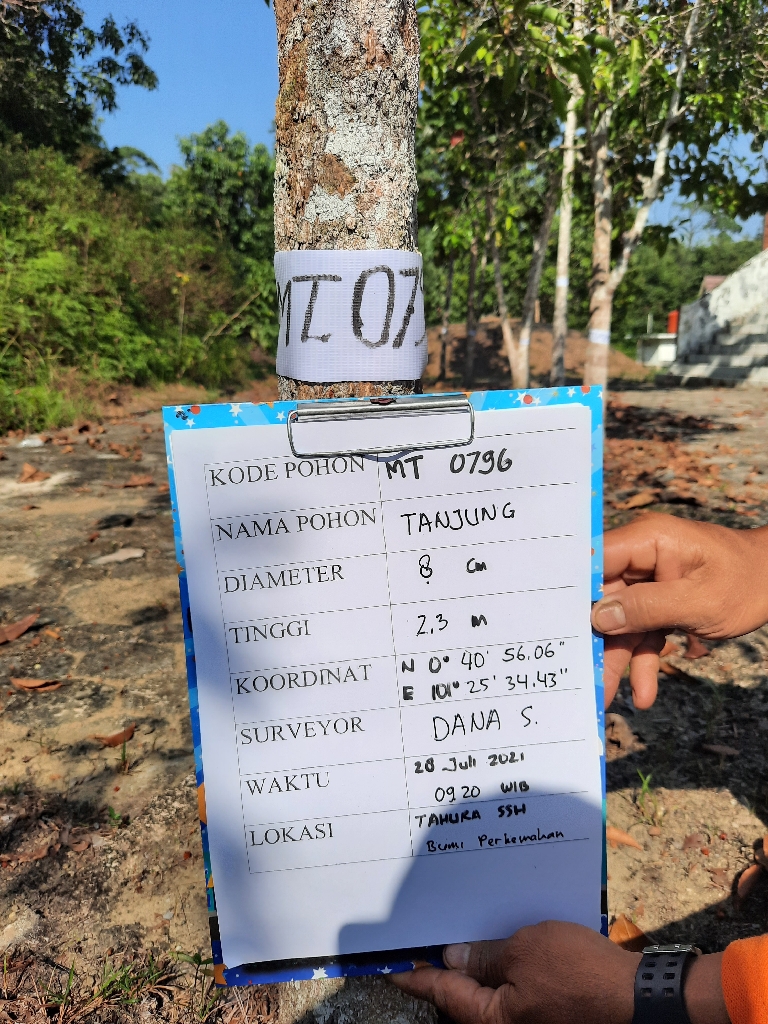 MT 079
KODE POHON MT 0796
NAMA POHON TANJUNG
DIAMETER 8 Cm
TINGGI 2,3 m
KOORDINAT N 0° 40' 56.06"
E 101° 25' 34.43"
SURVEYOR DANA S.
WAKTU 28 Juli 2021
09 20 WIB
LOKASI TAHURA SSH
Bumi Perkemahan